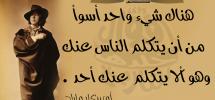 هناك شيء واحد أسوأ
من أن يتكلم الناس عنك
وهو ألا يتكلم عنك أحد .